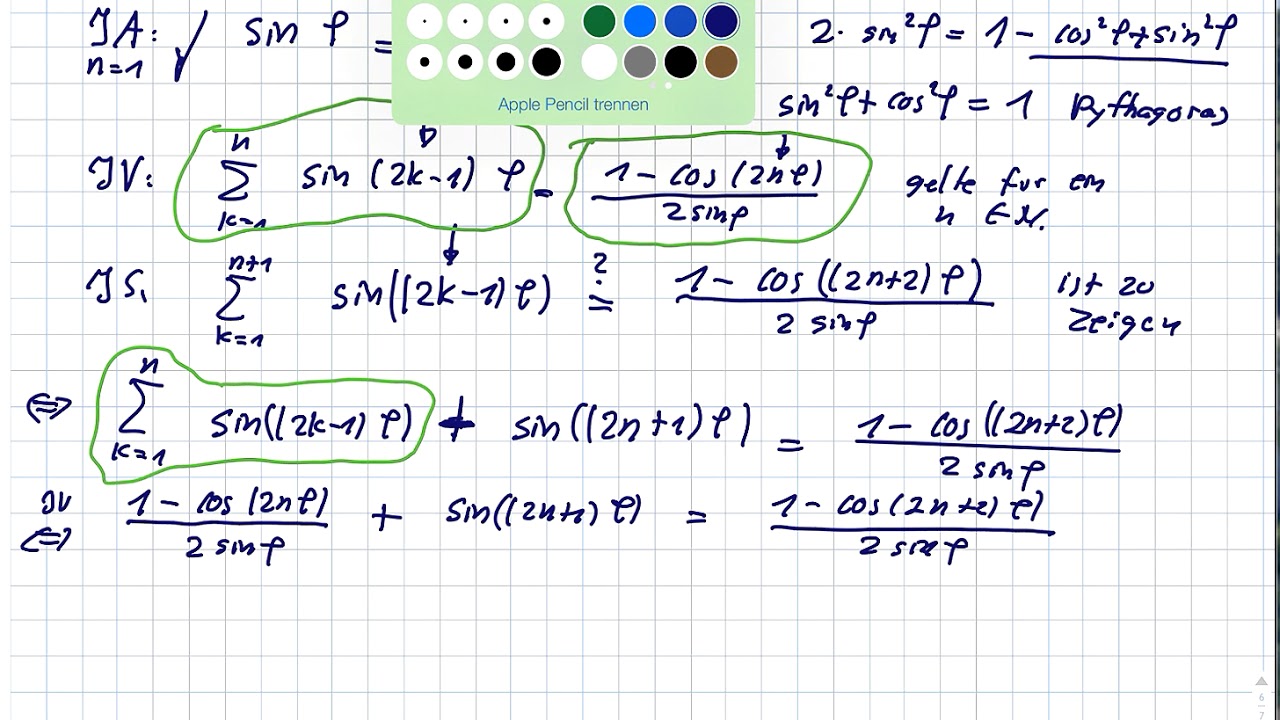 JA: ✓ sin φ =
n=1
2· sin²φ = 1 - cos²φ+sin²φ
Apple Pencil trennen
sin²φ + cos²φ = 1 Pythagoras
JV: n∑k=1 sin (2k-1) φ = (1 - cos (2nφ)) / (2 sinφ) gelte für ein
n ∈ ℕ.
JS, n+1∑k=1 sin((2k-1)φ) ≟ (1 - cos((2n+2)φ)) / (2 sinφ) ist zo
zeigen
⇔ n∑k=1 sin((2k-1)φ) + sin((2n+1)φ) = (1 - cos((2n+2)φ)) / (2 sinφ)
JV ⇔ (1 - cos(2nφ)) / (2 sinφ) + sin((2n+1)φ) = (1 - cos(2n+2)φ) / (2 sinφ)
6
7